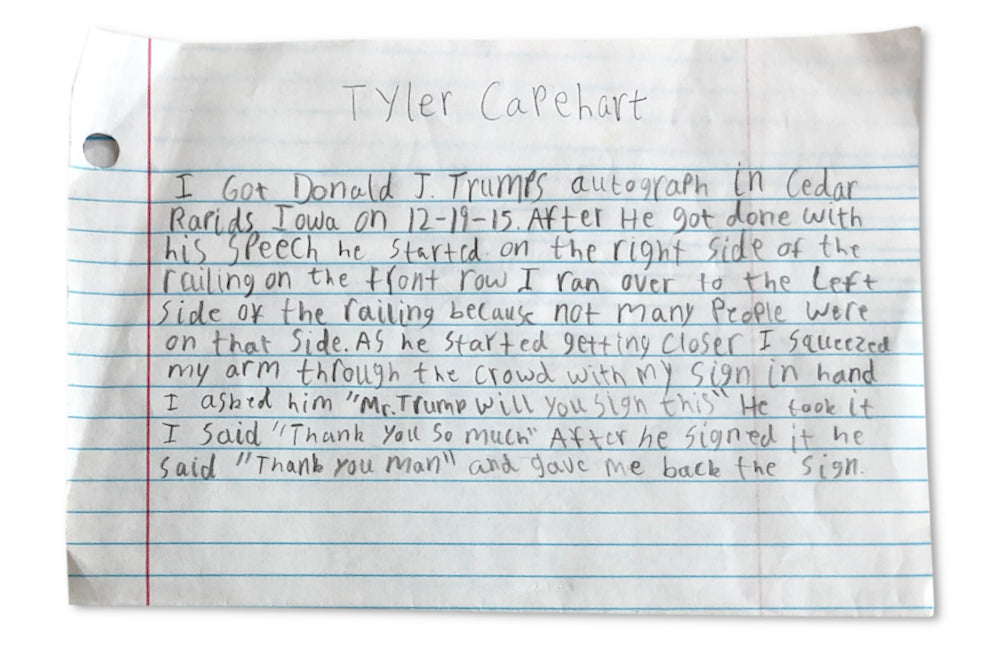 Tyler Capehart
I Got Donald J. Trumps autograph in Cedar
Rapids, Iowa on 12-19-15. After He got done with
his speech he started on the right side of the
railing on the front row I ran over to the Left
side of the railing because not many People were
on that side. As he started getting closer I squeezed
my arm through the crowd with my sign in hand
I asked him "Mr. Trump will you sign this" He took it
I said "Thank you so much" After he signed it he
said "Thank you man" and gave me back the sign.